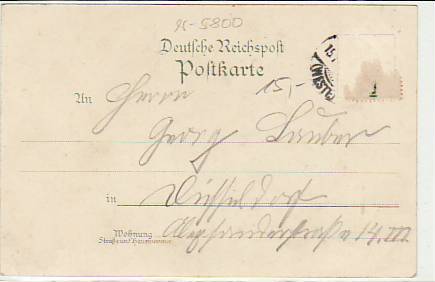 5800
Deutsche Reichspost
Postkarte
15,-
An Herrn
Georg Lauber
in Düsseldorf
Wohnung
(Straße und Hausnummer)
Alexanderstraße 14. III